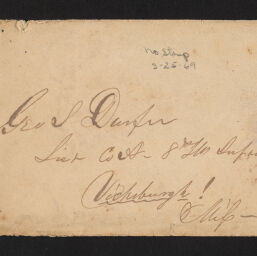 No Stamp
3-25-69
Geo S Durfee
Lieut Co A- 8th Ills Infty
Vicksburgh!
Miss-